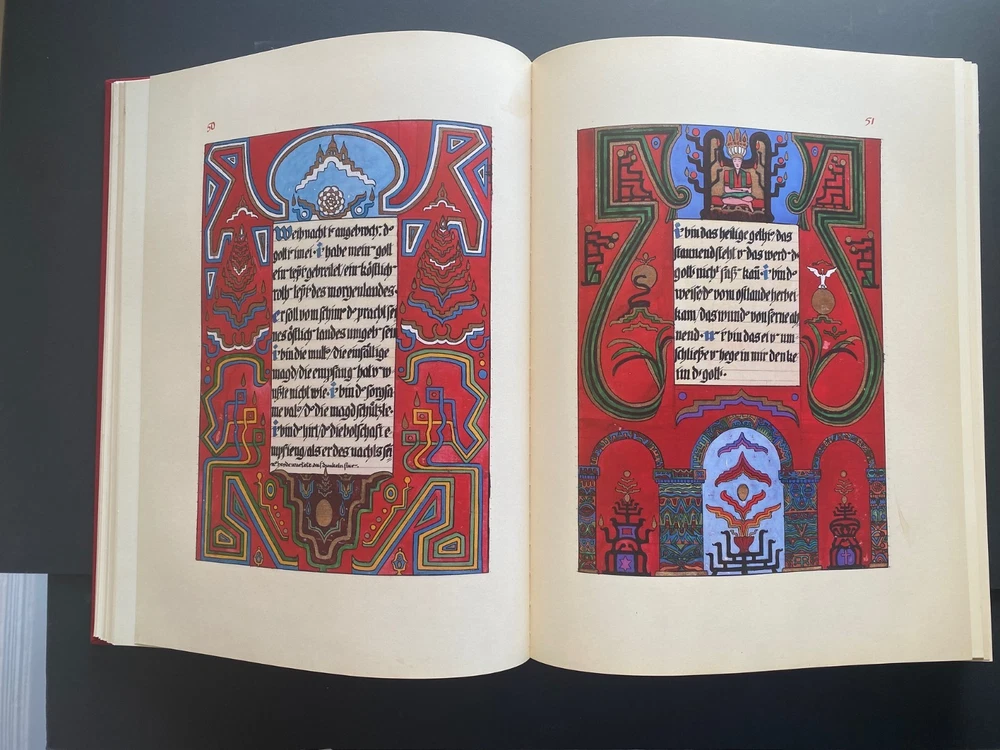 50
Weihnacht iſt angebroch. d
gott iſt im ei. i habe mein gott
ein tepp gebreitet/ein köſtlich
roth tepp des morgenlandes.
er ſoll vom ſchim d pracht ſei
nes öſtlich landes umgeb ſein
i bin die mutt/die einfältige
magd/die empfang hat v w
ußte nicht wie. i bin d ſorgſa
me vat/d die magd ſchützte.
i bin d hirt/d die botſchaft e
mpfieng/als er des nachts ſei
ne heerde wartete auf dunkeln flur.
51
i bin das heilige gethi das
ſtaunend ſteht v das werd d
gott nicht faß kañ. i bin d
weiſe d vom oſtlande herbei
kam/das wund von ferne ah
nend. u i bin das ei v um
ſchließe v hege in mir den ke
im d gott.